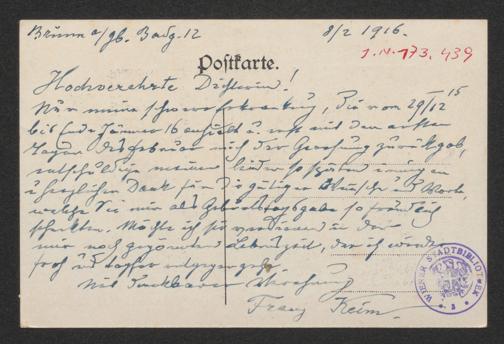 Brünn a/gb. Badg. 12 8/2 1916.
I.N. 173.439
Postkarte.
Hochverehrte Dichterin!
Nur meine schwere Erkrankung, die vom 29/12 15
bis Ende Jänner 16 anhielt u. erst mit den ersten
Tagen des Februar mich der Genesung zurückgab,
entschuldige meinen leider so späten innigen
u herzlichen Dank für die gütigen Wünsche und Worte,
welche Sie mir als Geburtstagsgabe so freundlich
schenkten. Möchte ich sie verdienen in der
mir noch gegönnten Lebenszeit, der ich wieder
froh und tapfer entgegengehe.
Mit dankbarer Verehrung
Franz Keim.
WIENER STADTBIBLIOTHEK